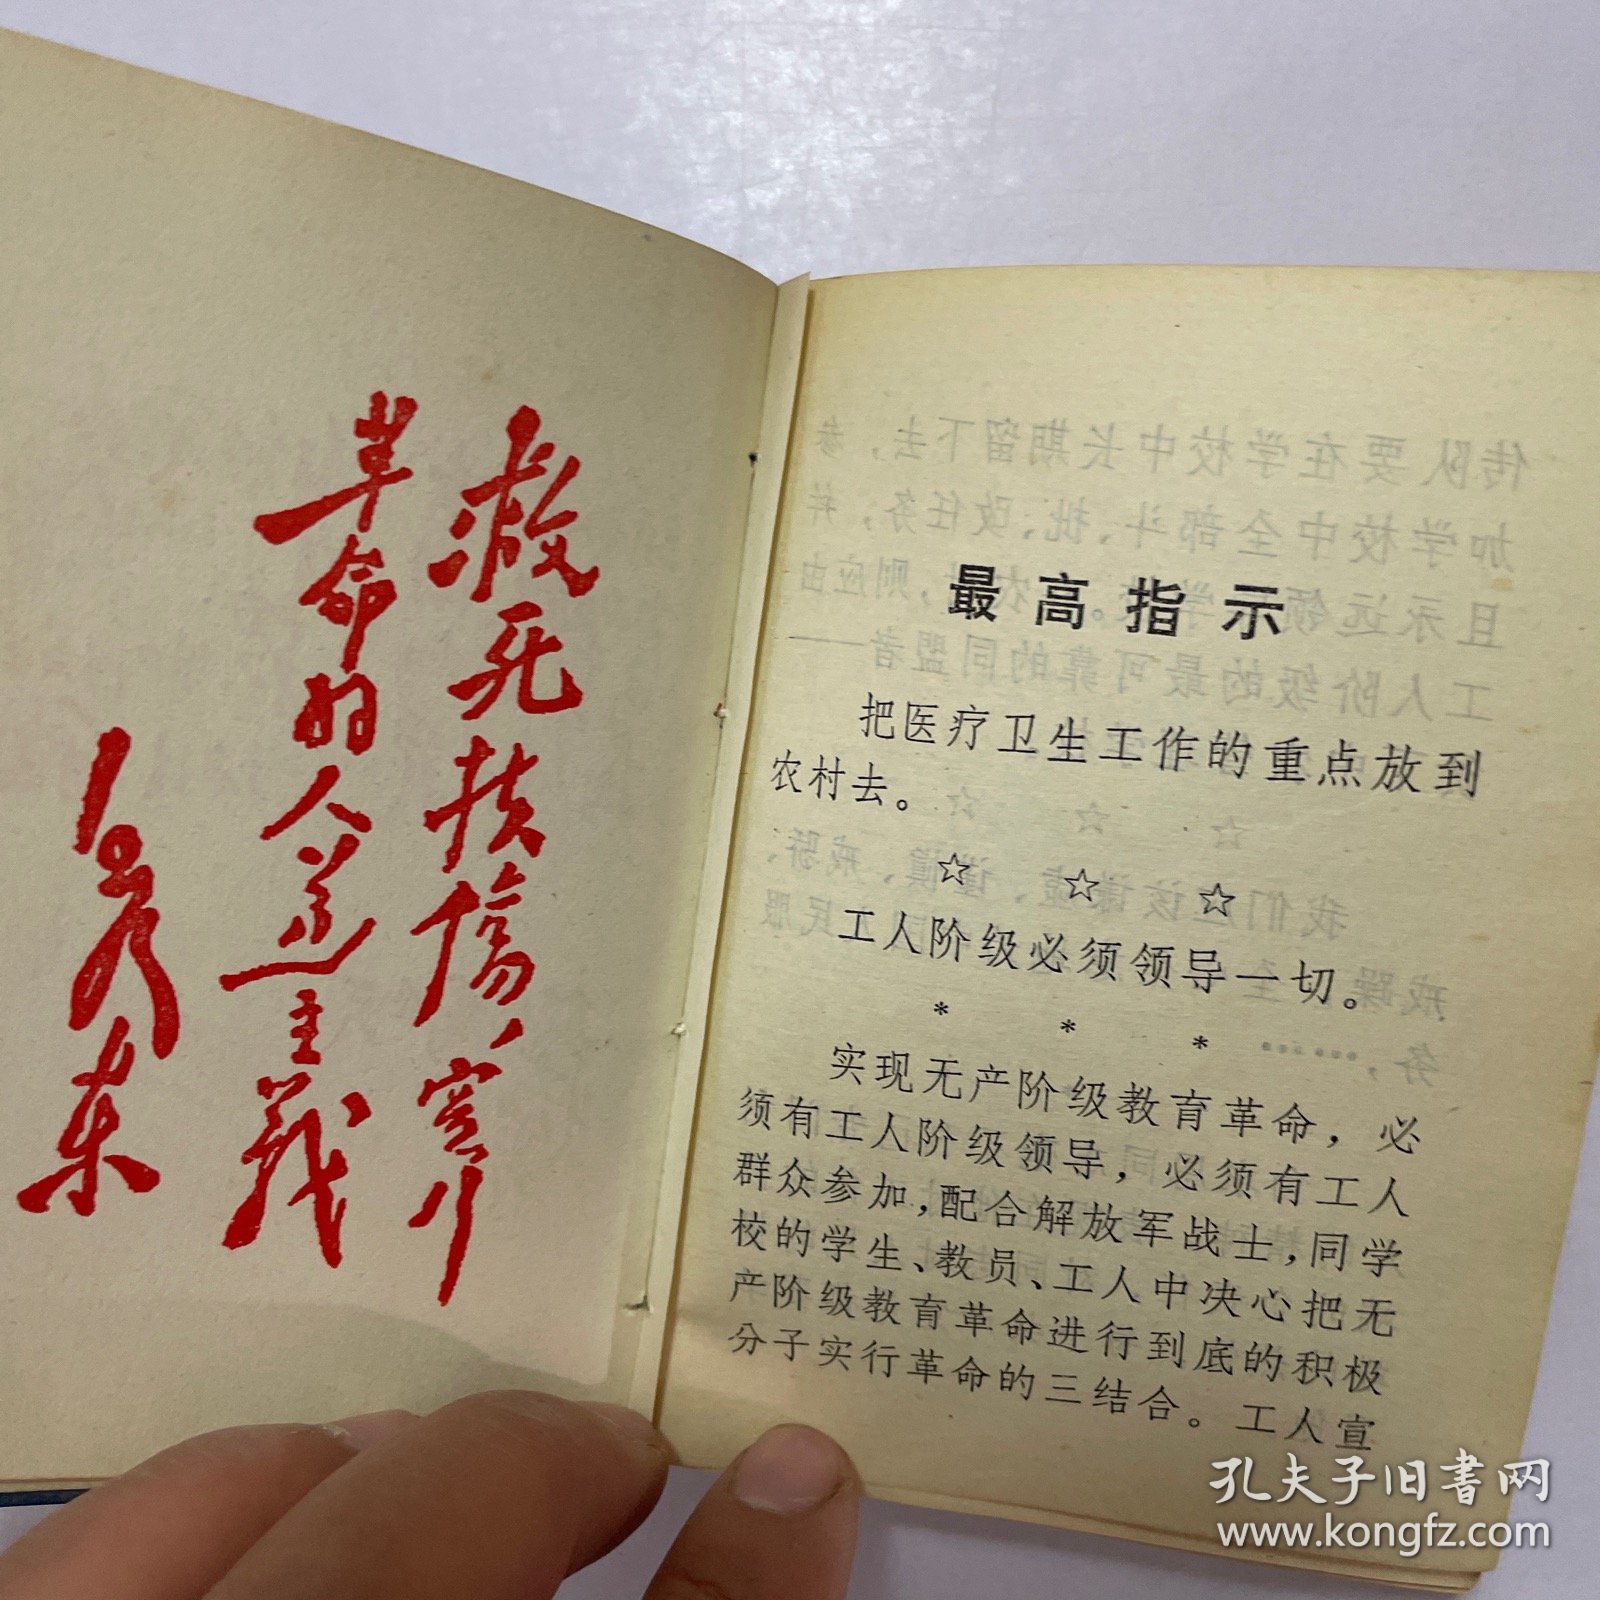 救死扶伤，实行
革命的人道主义
毛泽东
最高指示
把医疗卫生工作的重点放到
农村去。
☆ ☆ ☆
工人阶级必须领导一切。
* * *
实现无产阶级教育革命，必
须有工人阶级领导，必须有工人
群众参加，配合解放军战士，同学
校的学生、教员、工人中决心把无
产阶级教育革命进行到底的积极
分子实行革命的三结合。工人宣
孔夫子旧书网
www.kongfz.com